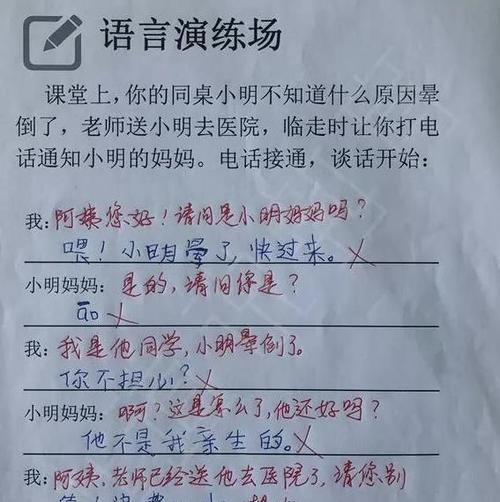 语言演练场
课堂上,你的同桌小明不知道什么原因晕
倒了,老师送小明去医院,临走时让你打电
话通知小明的妈妈。电话接通,谈话开始:
我:阿姨您好!请问是小明妈妈吗?
喂!小明晕了,快过来。
小明妈妈:是的,请问你是?
哦
我:我是他同学,小明晕倒了。
你不担心?
小明妈妈:啊?这是怎么了,他还好吗?
他不是我亲生的。
我:阿姨,老师已经送他去医院了,请您别